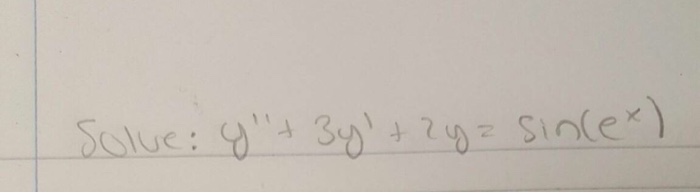 Solve: y'' + 3y' + 2y = sin(e^x)